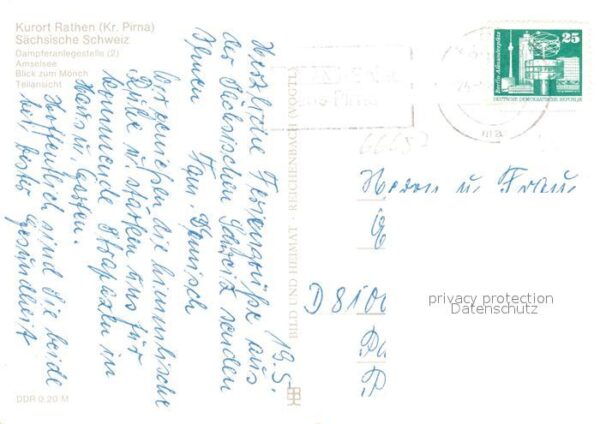 Kurort Rathen (Kr. Pirna)
Sächsische Schweiz
Dampferanlegestelle (2)
Amselsee
Blick zum Mönch
Teilansicht
19.5.
Herzliche Feriengrüße aus
der Sächsischen Schweiz senden
Ihnen Fam.
Wir genießen die himmlische
Ruhe u. stärken uns für
kommende Strapazen im
Haus u. Garten.
Hoffentlich sind Sie beide
bei bester Gesundheit
DDR 0,20 M
BILD UND HEIMAT · REICHENBACH (VOGTL
Berlin, Alexanderplatz
25
DEUTSCHE DEMOKRATISCHE REPUBLIK
Herrn u. Frau
D 8100
privacy protection
Datenschutz